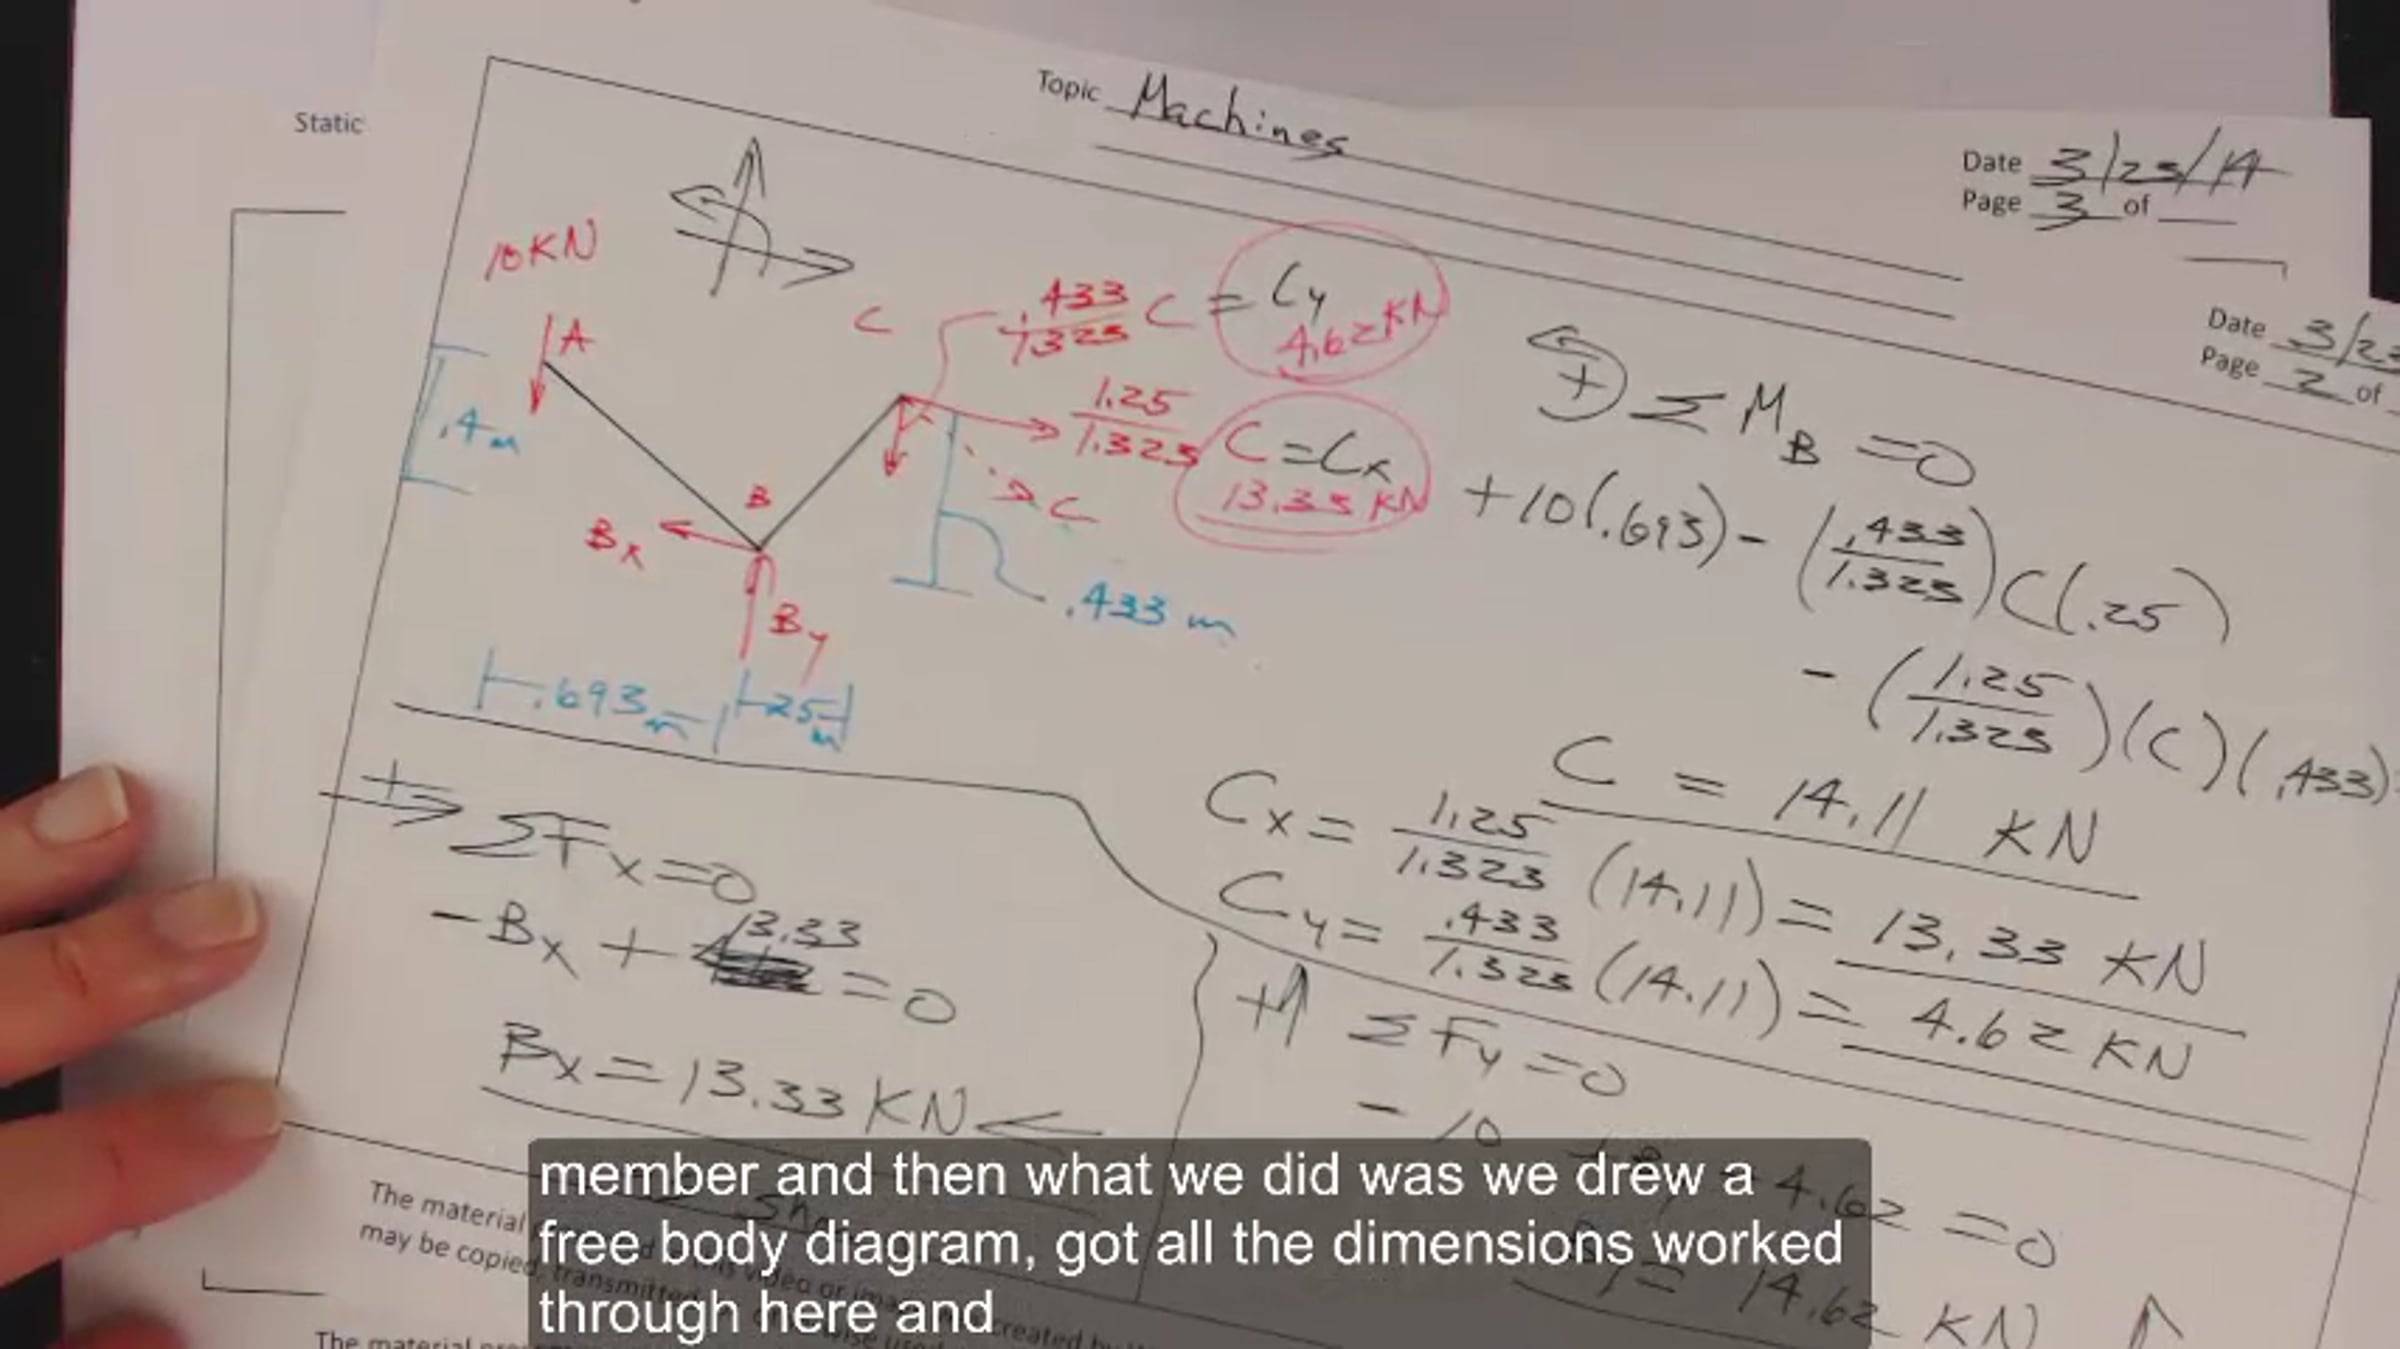 Static
Topic Machines
Date 3/23/14
Page 3 of
Date 3/23
Page 2 of
10KN
A
.4m
C
.433/1.323 C = Cy
4.62KN
1.25/1.323 C = Cx
13.33 KN
C
B
Bx
By
.433 m
.693m
.25m
+ ΣMB = 0
+10(.693) - (.433/1.323)C(.25)
- (1.25/1.323)(C)(.433)=
C = 14.11 KN
Cx = 1.25/1.323 (14.11) = 13.33 KN
Cy = .433/1.323 (14.11) = 4.62 KN
+→ ΣFx=0
-Bx + 13.33 = 0
Bx = 13.33 KN ←
+↑ ΣFy = 0
-10 4.62 = 0
= 14.62 KN ↑
The material
may be copied, transmitted
created by
The material
member and then what we did was we drew a
free body diagram, got all the dimensions worked
through here and